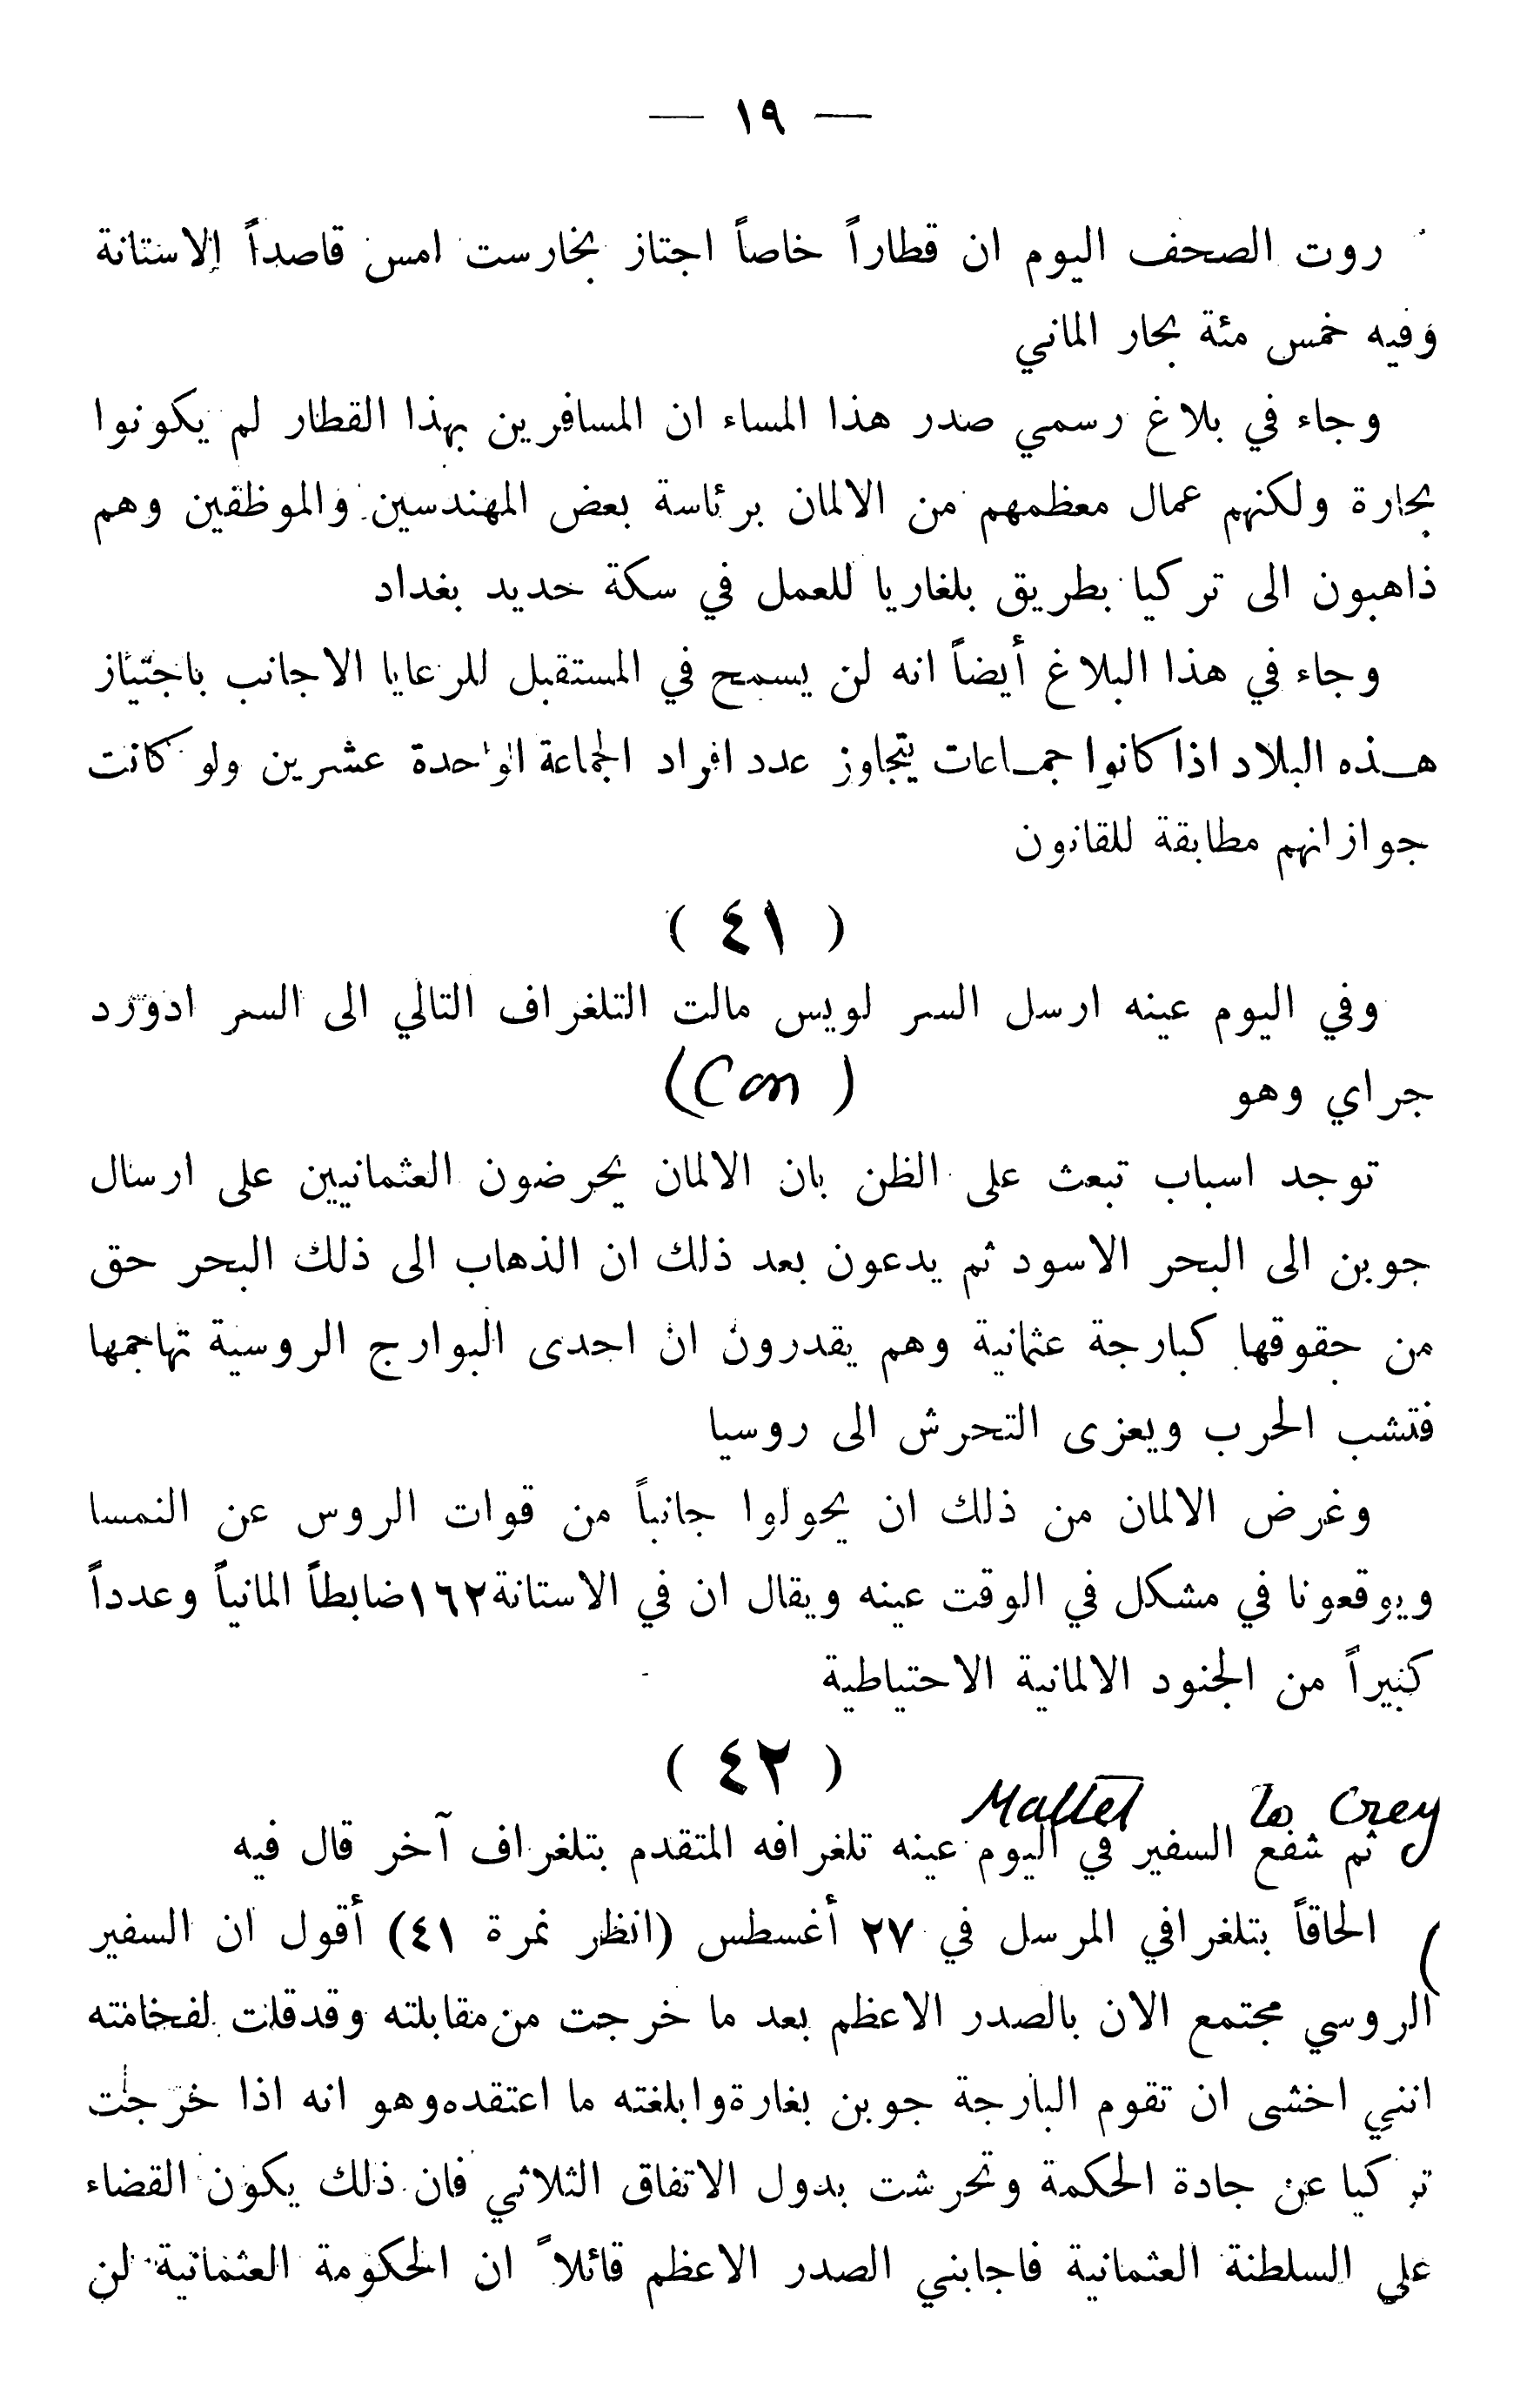 — ١٩ —
روت الصحف اليوم ان قطاراً خاصاً اجتاز بخارست امس قاصداً الاستانة
وفيه خمس مئة بحار الماني
وجاء في بلاغ رسمي صدر هذا المساء ان المسافرين بهذا القطار لم يكونوا
بحارة ولكنهم عمال معظمهم من الالمان برئاسة بعض المهندسين والموظفين وهم
ذاهبون الى تركيا بطريق بلغاريا للعمل في سكة حديد بغداد
وجاء في هذا البلاغ أيضاً انه لن يسمح في المستقبل للرعايا الاجانب باجتياز
هـذه البلاد اذا كانوا جمـاعات يتجاوز عدد افراد الجماعة الواحدة عشرين ولو كانت
جوازاتهم مطابقة للقانون
( ٤١ )
وفي اليوم عينه ارسل السر لويس مالت التلغراف التالي الى السر ادورد
جراي وهو (Con)
توجد اسباب تبعث على الظن بان الالمان يحرضون العثمانيين على ارسال
جوبن الى البحر الاسود ثم يدعون بعد ذلك ان الذهاب الى ذلك البحر حق
من حقوقها كبارجة عثمانية وهم يقدرون ان احدى البوارج الروسية تهاجمها
فتشب الحرب ويعزى التحرش الى روسيا
وغرض الالمان من ذلك ان يحولوا جانباً من قوات الروس عن النمسا
ويوقعونا في مشكل في الوقت عينه ويقال ان في الاستانة ١٦٢ ضابطاً المانياً وعدداً
كثيراً من الجنود الالمانية الاحتياطية
( ٤٢ )
Mallet to Grey
ثم شفع السفير في اليوم عينه تلغرافه المتقدم بتلغراف آخر قال فيه
الحاقاً بتلغرافي المرسل في ٢٧ أغسطس (انظر نمرة ٤١) أقول ان السفير
الروسي مجتمع الان بالصدر الاعظم بعد ما خرجت من مقابلته وقد قلت لفخامته
انني اخشى ان تقوم البارجة جوبن بغارة وابلغته ما اعتقده وهو انه اذا خرجت
تركيا عن جادة الحكمة وتحرشت بدول الاتفاق الثلاثي فان ذلك يكون القضاء
على السلطنة العثمانية فاجابني الصدر الاعظم قائلاً ان الحكومة العثمانية لن